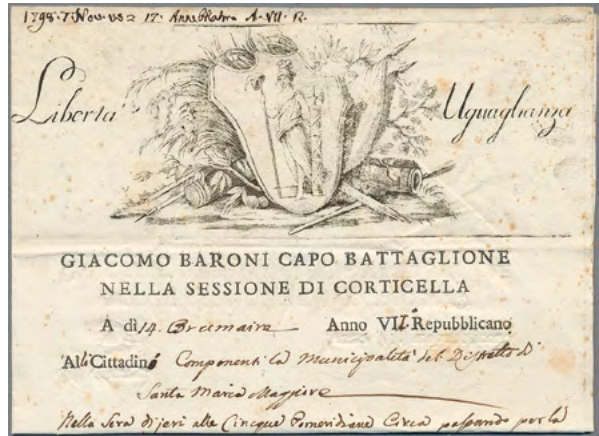 1798. 7. Nov.
Libertà Uguaglianza
GIACOMO BARONI CAPO BATTAGLIONE
NELLA SESSIONE DI CORTICELLA
A dì 14. Brumaire Anno VII. Repubblicano
Alli Cittadini Componenti la Municipalità del Distretto di
Santa Maria Maggiore
Nella Sera di jeri alle Cinque Pomeridiane Circa passando per la